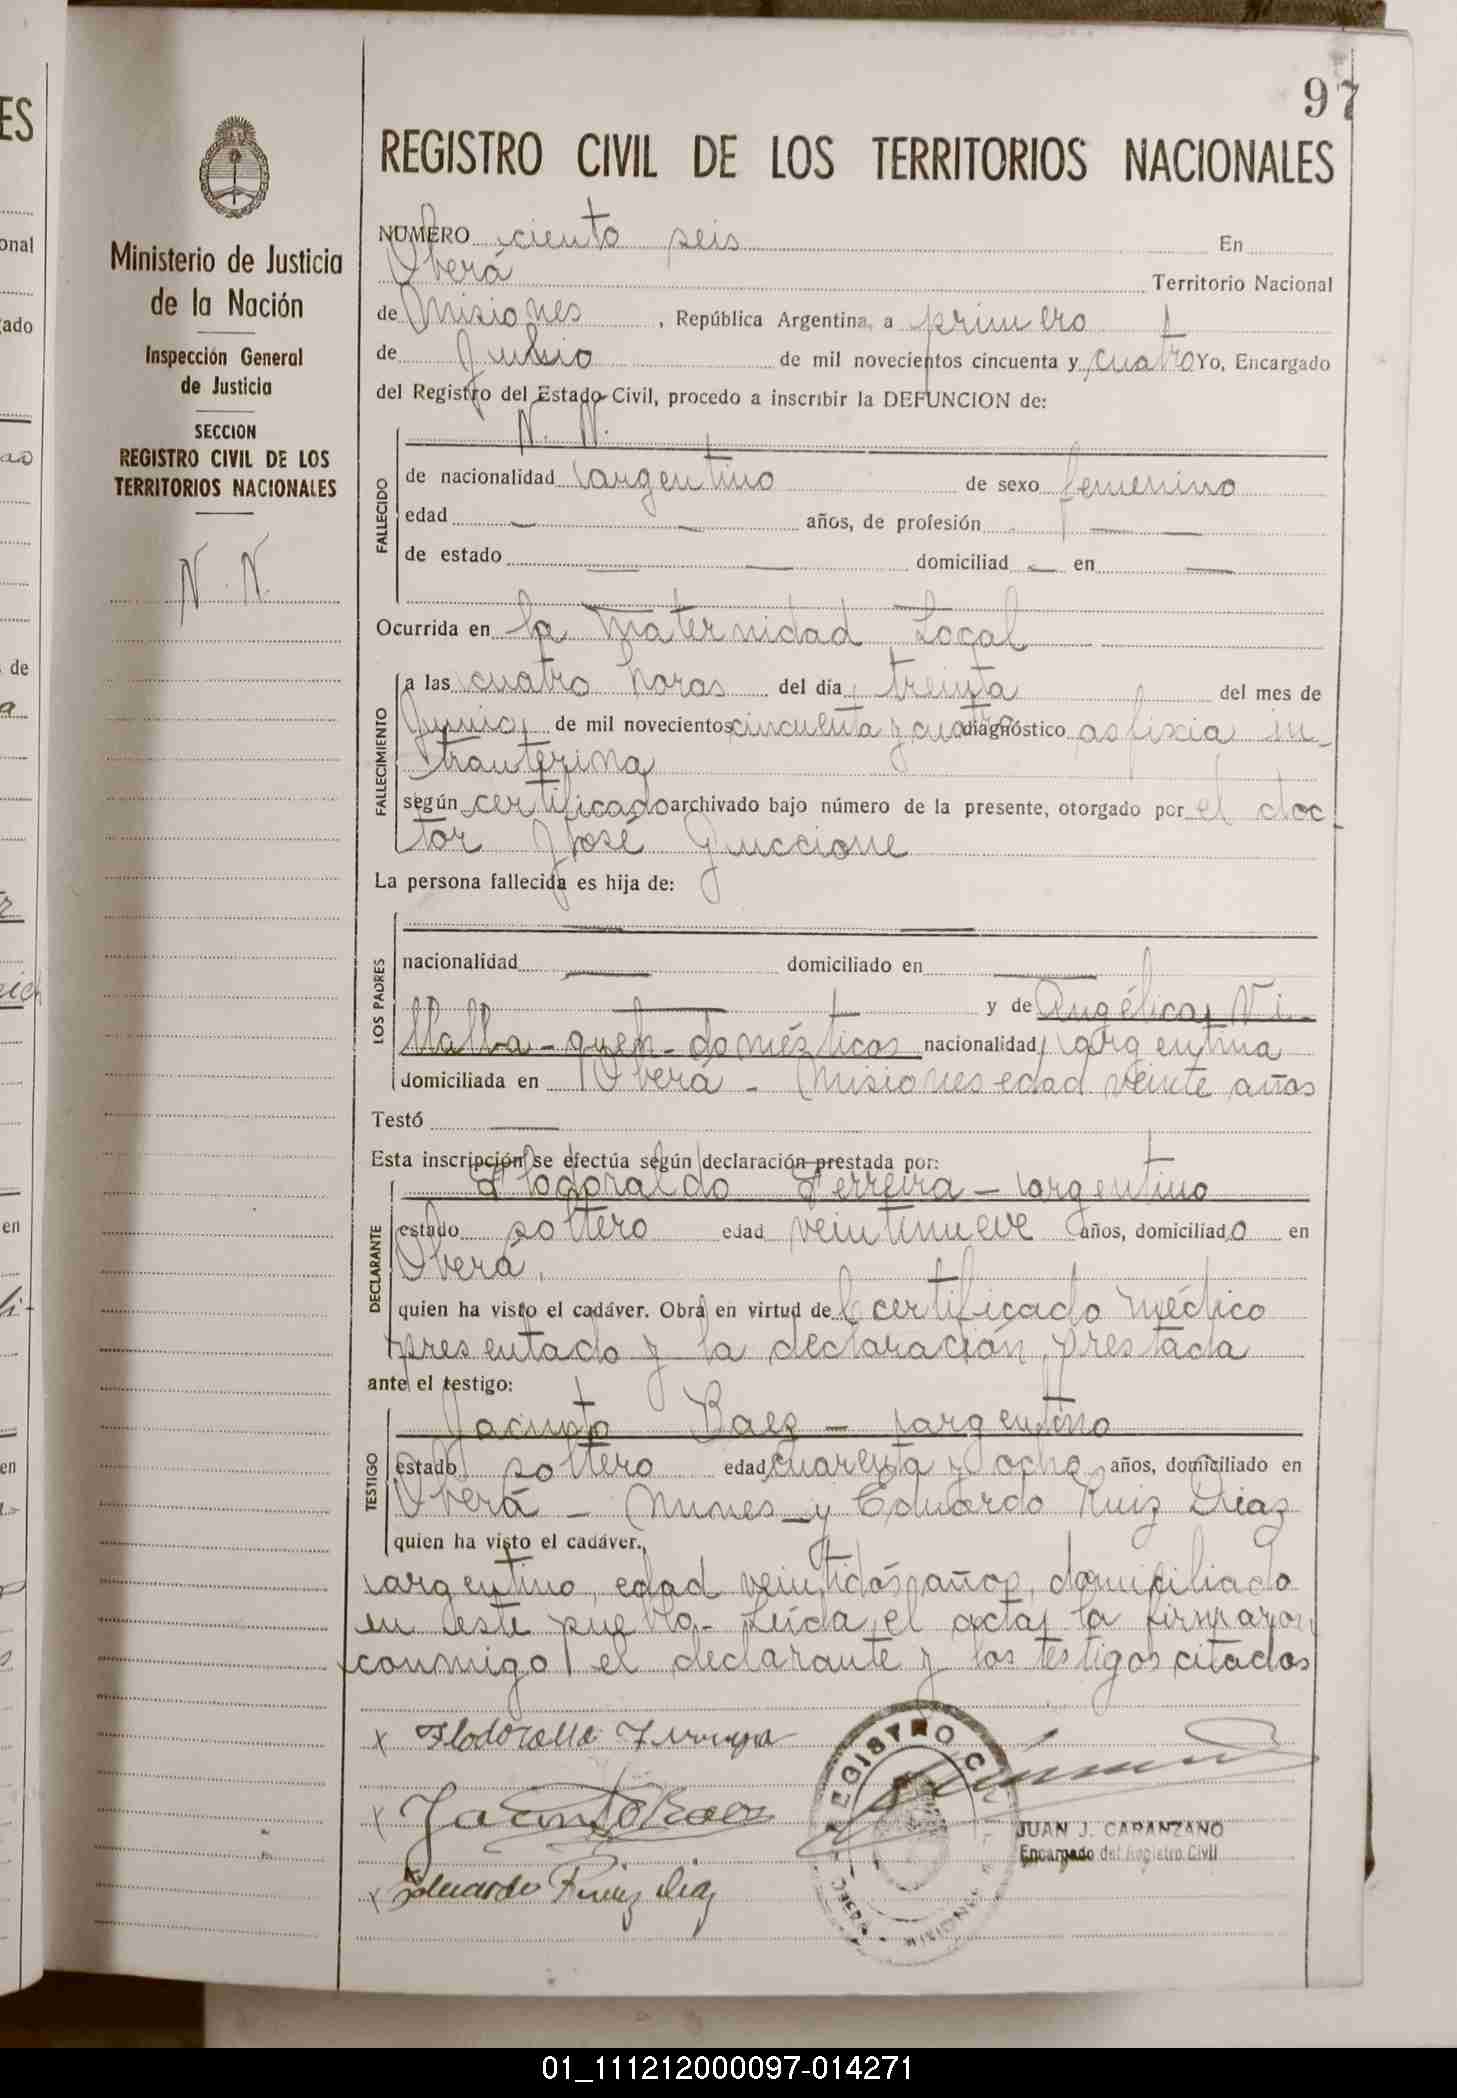 97
REGISTRO CIVIL DE LOS TERRITORIOS NACIONALES
Ministerio de Justicia
de la Nación
Inspección General
de Justicia
SECCION
REGISTRO CIVIL DE LOS
TERRITORIOS NACIONALES
N. N.
NÚMERO ciento seis En
Oberá Territorio Nacional
de Misiones, República Argentina, a primero
de Julio de mil novecientos cincuenta y cuatro Yo, Encargado
del Registro del Estado Civil, procedo a inscribir la DEFUNCION de:
N. N.
FALLECIDO
de nacionalidad argentino de sexo femenino
edad — — años, de profesión — —
de estado — — domiciliad — en —
Ocurrida en la Maternidad Local
FALLECIMIENTO
a las cuatro horas del día treinta del mes de
Junio de mil novecientos cincuenta y cuatro diagnóstico asfixia in-
trauterina
según certificado archivado bajo número de la presente, otorgado por el doc-
tor José Guccione
La persona fallecida es hija de:
LOS PADRES
nacionalidad — domiciliado en —
— y de Angélica Vi-
llalba - queh- domésticos nacionalidad argentina
domiciliada en Oberá - Misiones edad veinte años
Testó —
Esta inscripción se efectúa según declaración prestada por:
DECLARANTE
Flodoraldo Ferreira - argentino
estado soltero edad veintinueve años, domiciliado en
Oberá,
quien ha visto el cadáver. Obra en virtud del certificado médico
presentado y la declaración prestada
ante el testigo:
TESTIGO
Jacinto Baez - argentino
estado soltero edad cuarenta y ocho años, domiciliado en
Oberá - y Eduardo Ruiz Diaz
quien ha visto el cadáver.,
argentino, edad veintidós años, domiciliado
en este pueblo.- Leída el acta, la firmaron
conmigo el declarante y los testigos citados
x
x Jacinto Baez
x Eduardo Ruiz Diaz
REGISTRO C
JUAN J. CARANZANO
Encargado del Registro Civil
01_111212000097-014271